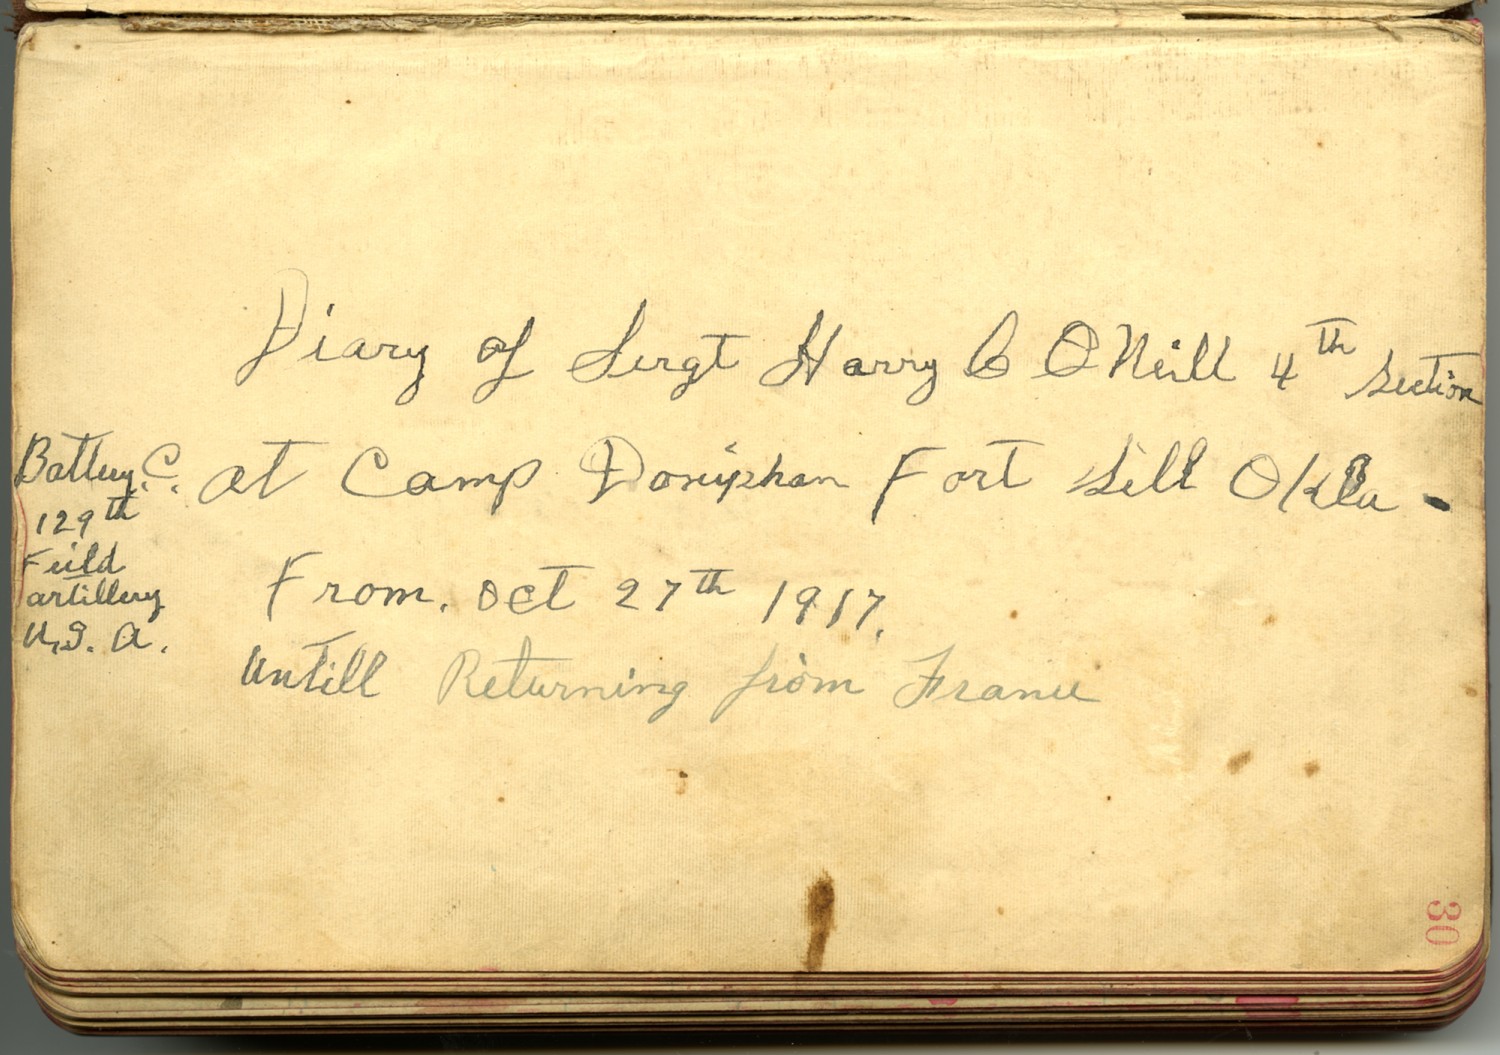 Diary of Sergt Harry C O'Neill 4th Section
Battery. C. at Camp Doniphan Fort Sill Okla -
129th
Field
artillery
U.S. A.
From. Oct 27th 1917.
Untill Returning from France
30